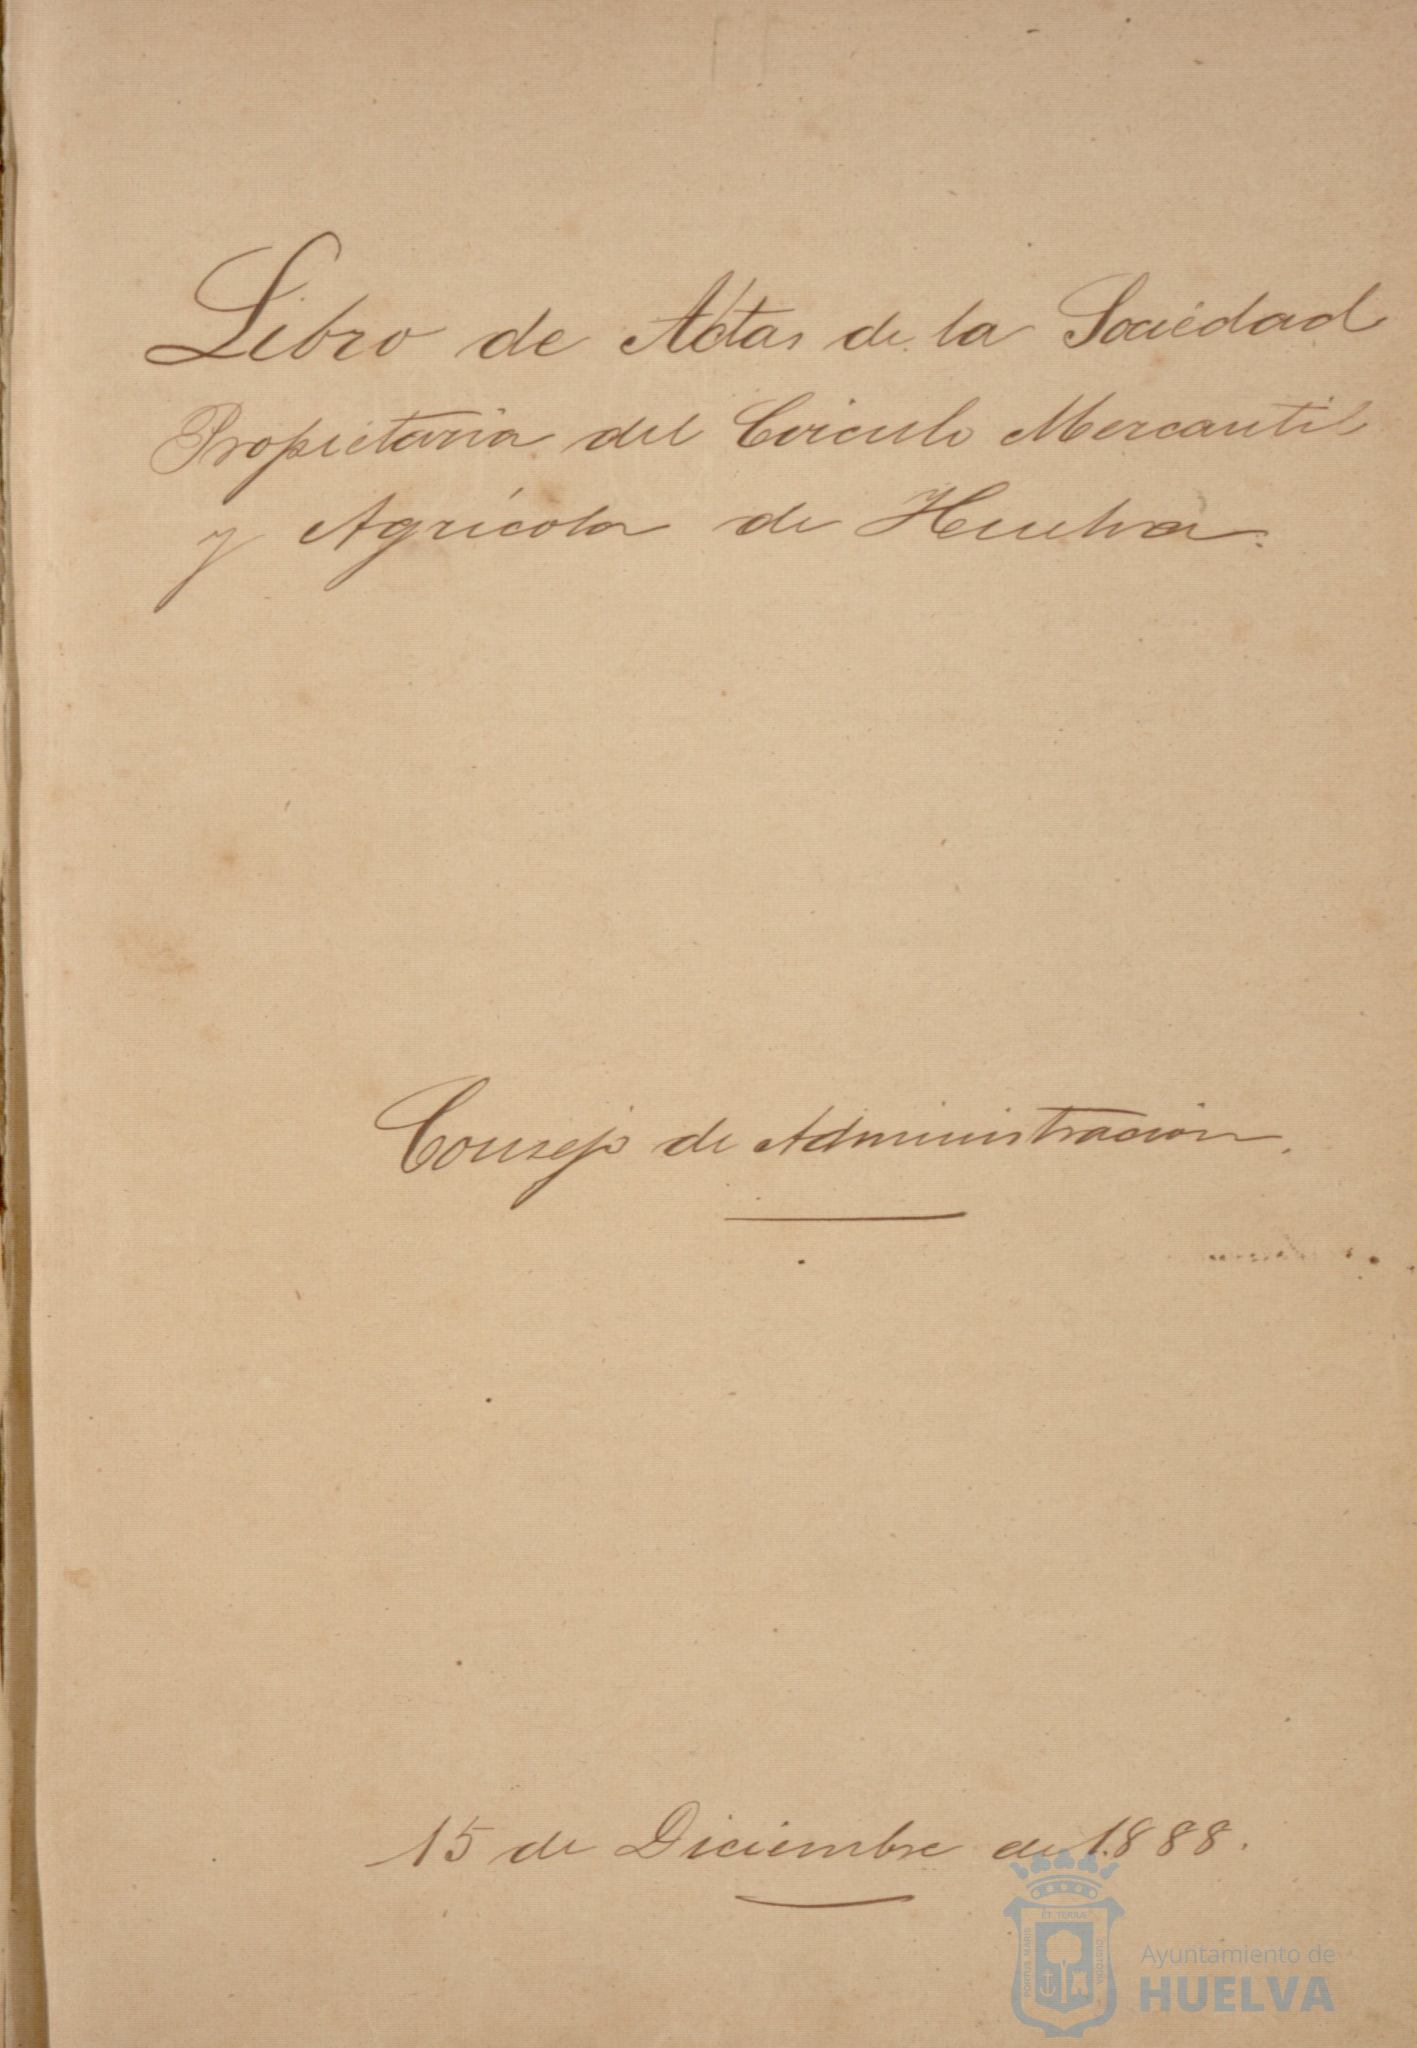 Libro de Actas de la Sociedad
Propietaria del Circulo Mercantil
y Agrícola de Huelva.
Consejo de Administracion.
15 de Diciembre de 1.888.
PORTUS MARIS
ET TERRAE
CUSTODIA
Ayuntamiento de
HUELVA